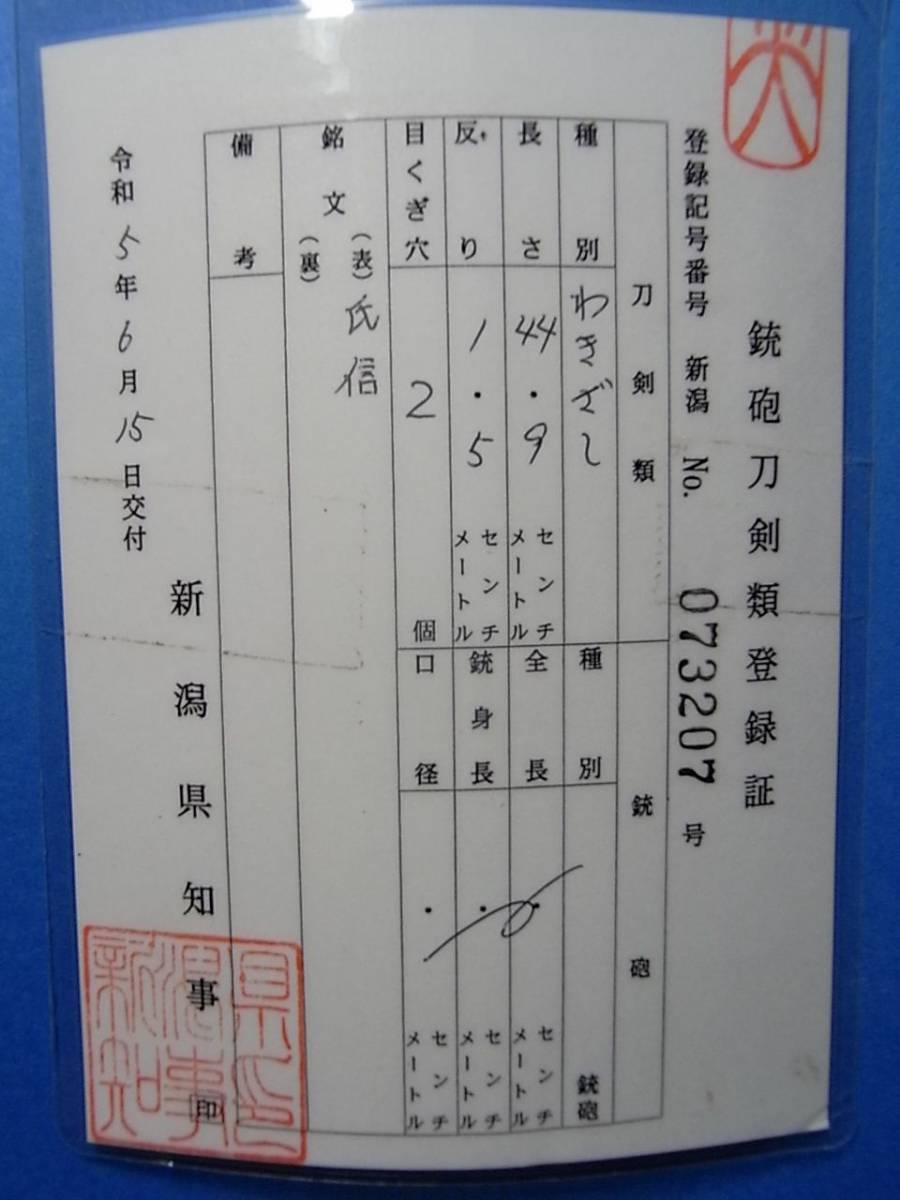 銃砲刀剣類登録証
登録記号番号 新潟 No. 073207 号
刀剣類
種別 わきざし
長さ 44.9 センチメートル
反り 1.5 センチメートル
目くぎ穴 2 個
銃砲
種別 銃砲
全長 ・ センチメートル
銃身長 ・ センチメートル
口径 ・ センチメートル
銘文
(表) 氏信
(裏)
備考
令和5年6月15日交付
新潟県知事 印
新潟県知事印